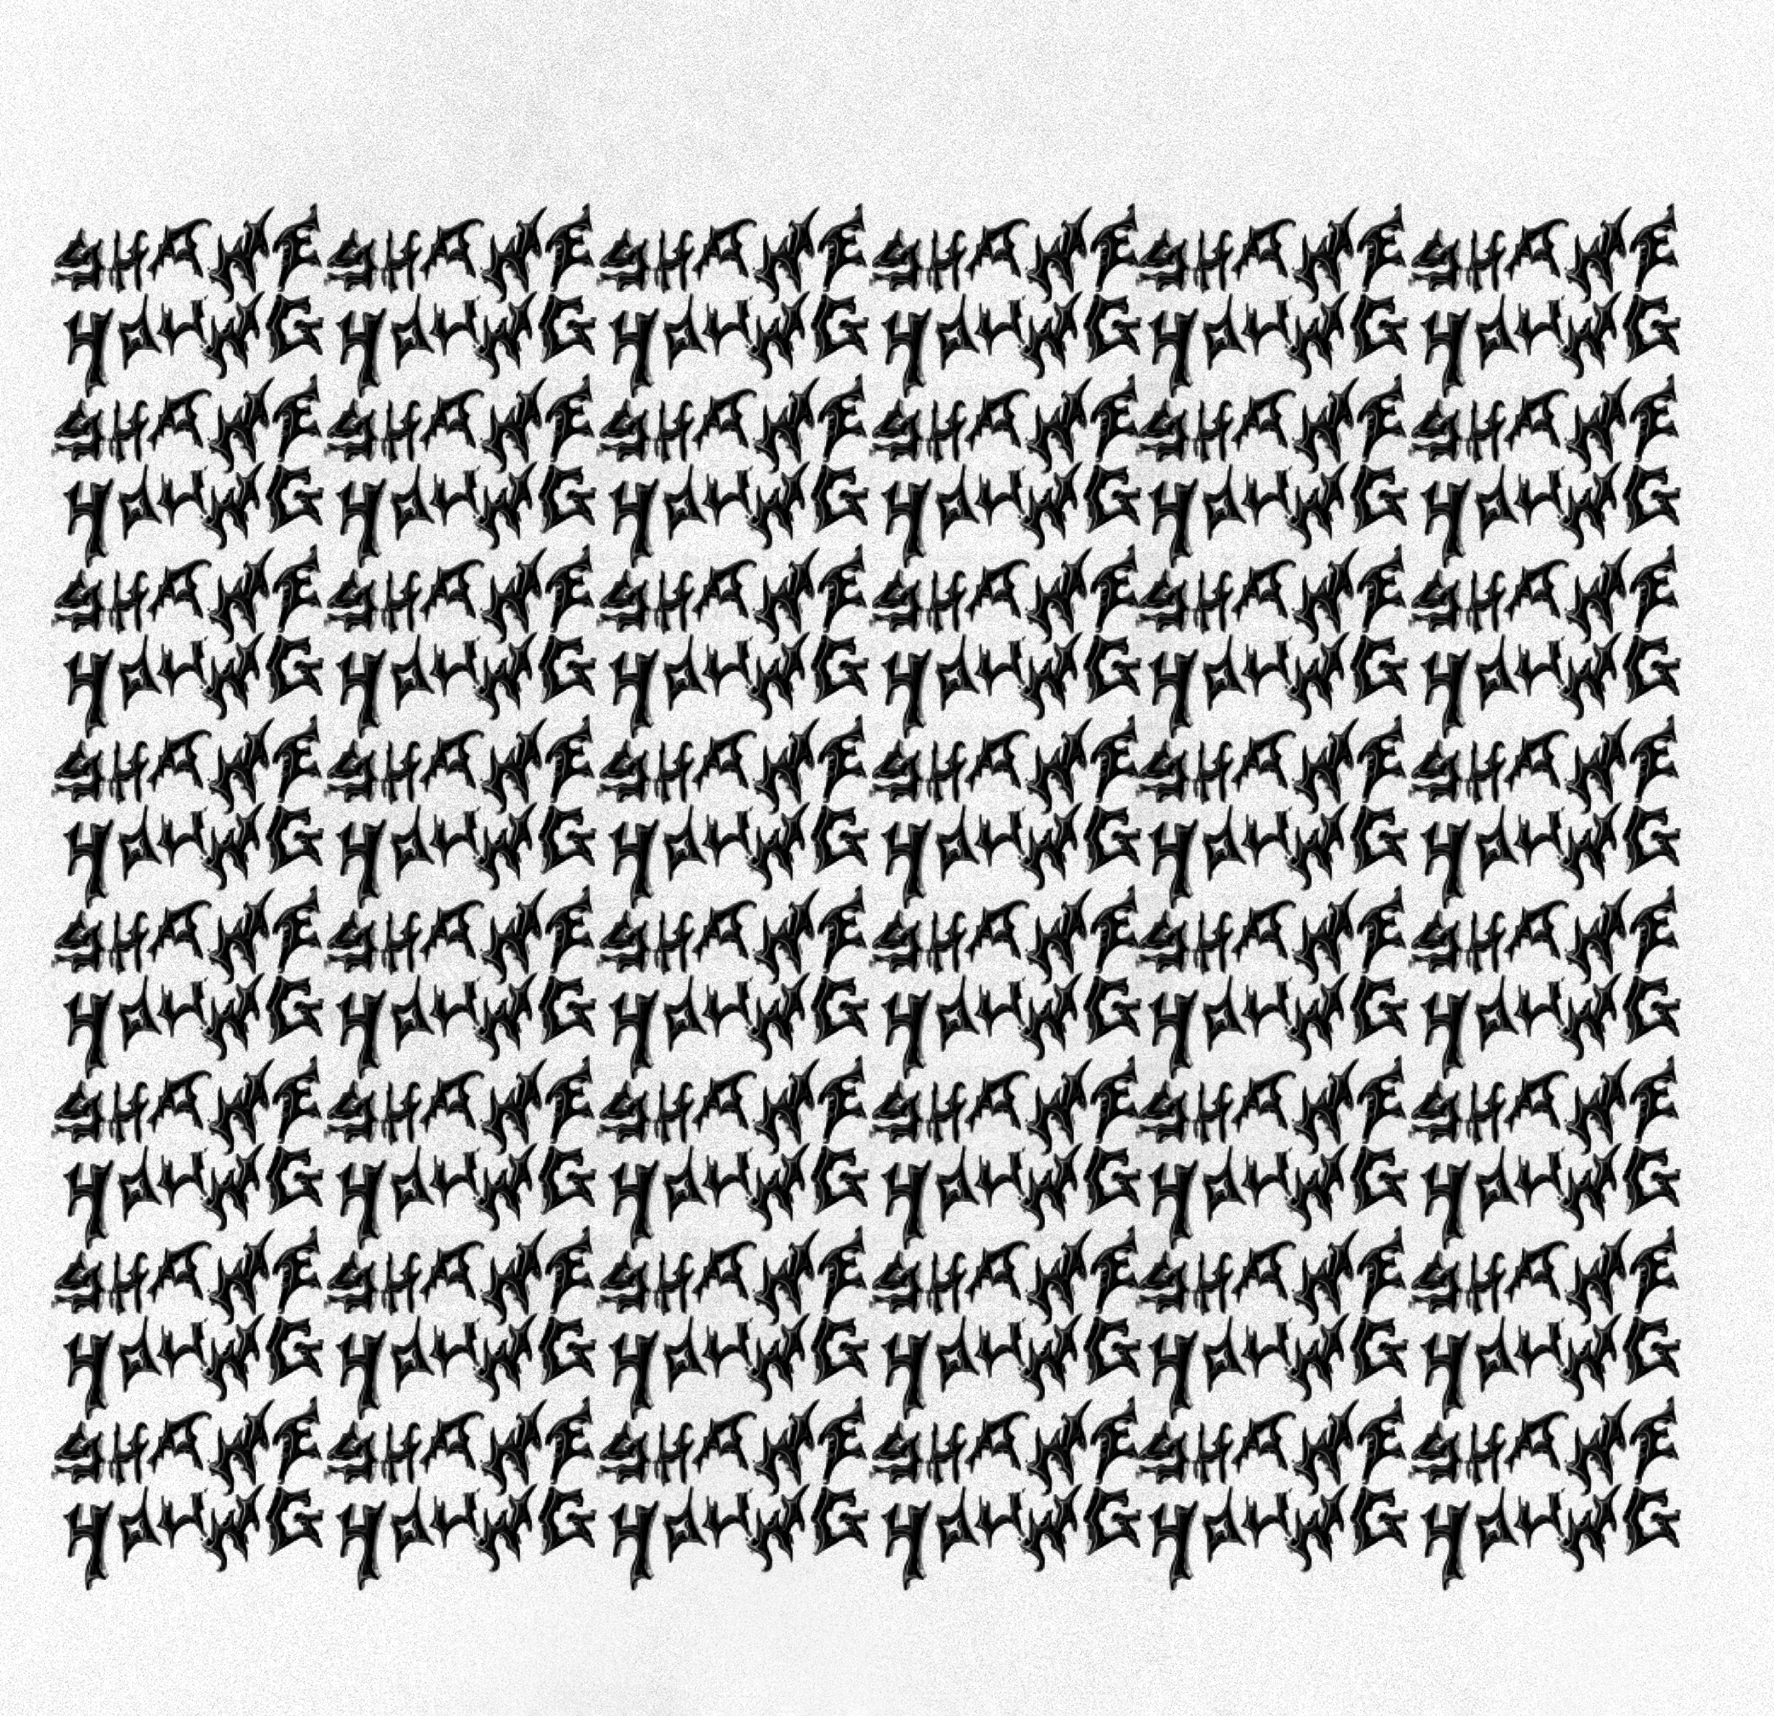 SHANE SHANE SHANE SHANE SHANE SHANE
YOUNG YOUNG YOUNG YOUNG YOUNG YOUNG
SHANE SHANE SHANE SHANE SHANE SHANE
YOUNG YOUNG YOUNG YOUNG YOUNG YOUNG
SHANE SHANE SHANE SHANE SHANE SHANE
YOUNG YOUNG YOUNG YOUNG YOUNG YOUNG
SHANE SHANE SHANE SHANE SHANE SHANE
YOUNG YOUNG YOUNG YOUNG YOUNG YOUNG
SHANE SHANE SHANE SHANE SHANE SHANE
YOUNG YOUNG YOUNG YOUNG YOUNG YOUNG
SHANE SHANE SHANE SHANE SHANE SHANE
YOUNG YOUNG YOUNG YOUNG YOUNG YOUNG
SHANE SHANE SHANE SHANE SHANE SHANE
YOUNG YOUNG YOUNG YOUNG YOUNG YOUNG
SHANE SHANE SHANE SHANE SHANE SHANE
YOUNG YOUNG YOUNG YOUNG YOUNG YOUNG